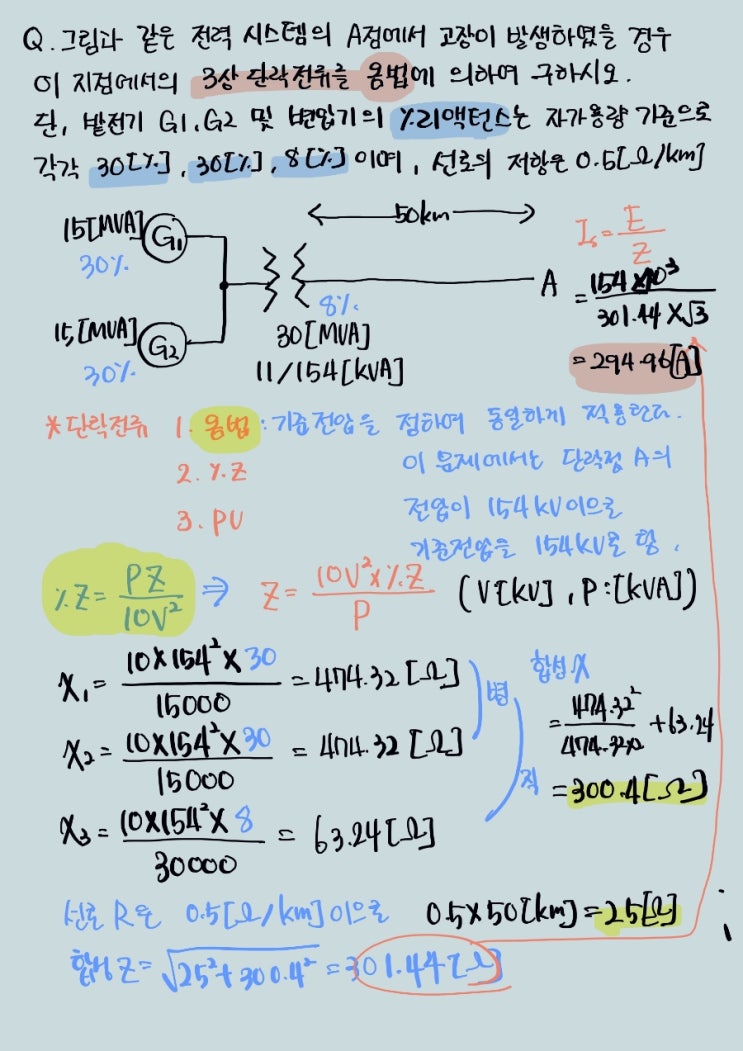 Q. 그림과 같은 전력 시스템의 A점에서 고장이 발생하였을 경우
이 지점에서의 3상 단락전류를 옴법에 의하여 구하시오.
단, 발전기 G1, G2 및 변압기의 %리액턴스는 자가용량 기준으로
각각 30[%], 30[%], 8[%] 이며, 선로의 저항은 0.5[Ω/km]
15[MVA] G1
30%
50km
15[MVA] G2
30%
8%
30[MVA]
11/154[kVA]
A
Is = E/Z
= 154×10³ / 301.44×√3
= 294.96[A]
*단락전류 1. 옴법 : 기준전압을 정하여 동일하게 적용한다.
이 문제에서는 단락점 A의
2. %.Z
전압이 154kV이므로
3. PU
기준전압을 154kV로 함.
%Z = PZ / 10V² ⇒ Z = 10V²×%Z / P (V[kV], P:[kVA])
X₁ = 10×154²×30 / 15000 = 474.32[Ω]
X₂ = 10×154²×30 / 15000 = 474.32[Ω]
병
X₃ = 10×154²×8 / 30000 = 63.24[Ω]
직
합성X
= 474.32² / 474.32×2 + 63.24
= 300.4[Ω]
선로 R은 0.5[Ω/km]이므로 0.5×50[km]=25[Ω]
합성 Z = √25²+300.4² = 301.44[Ω]